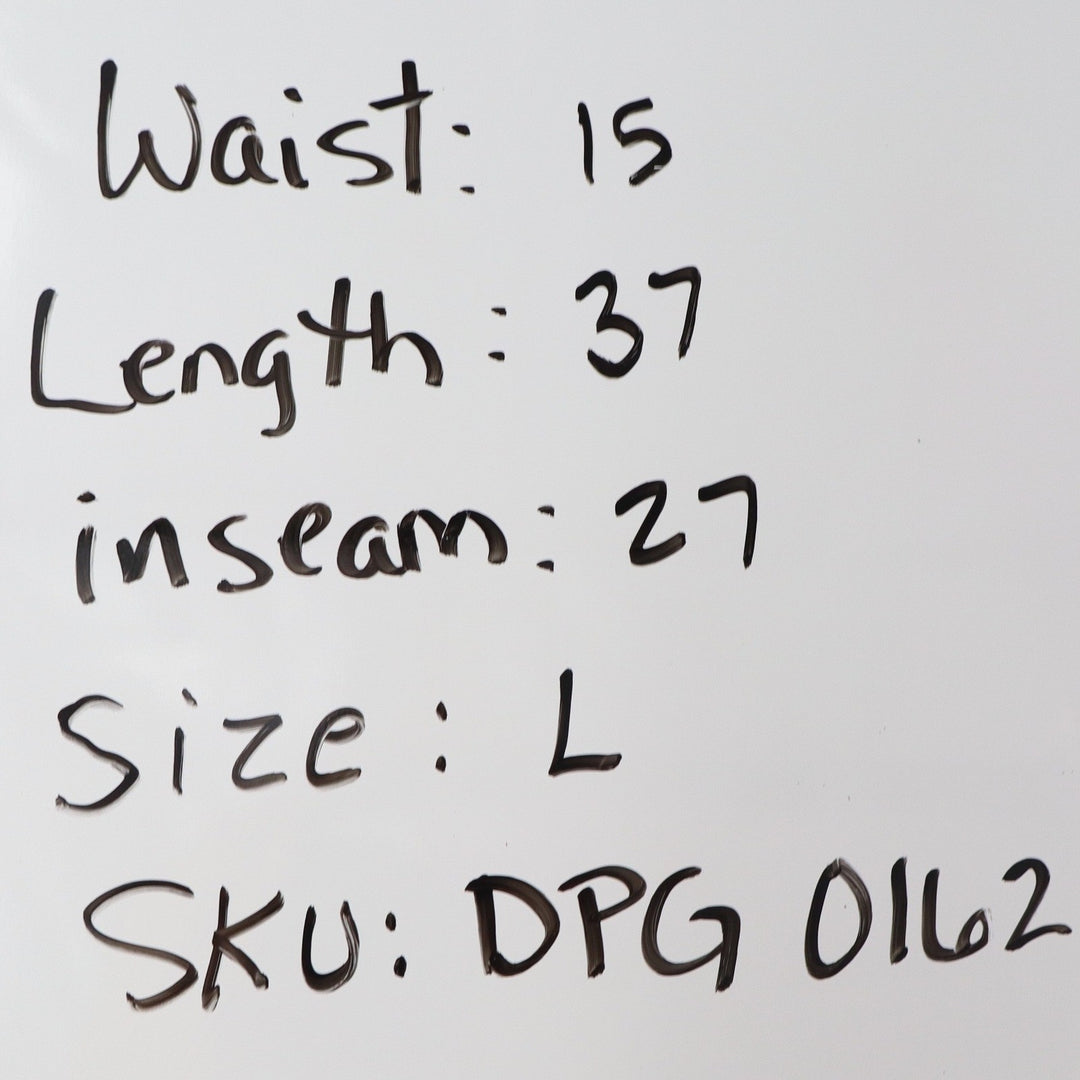 Waist: 15
Length: 37
inseam: 27
Size: L
SKU: DPG 0162